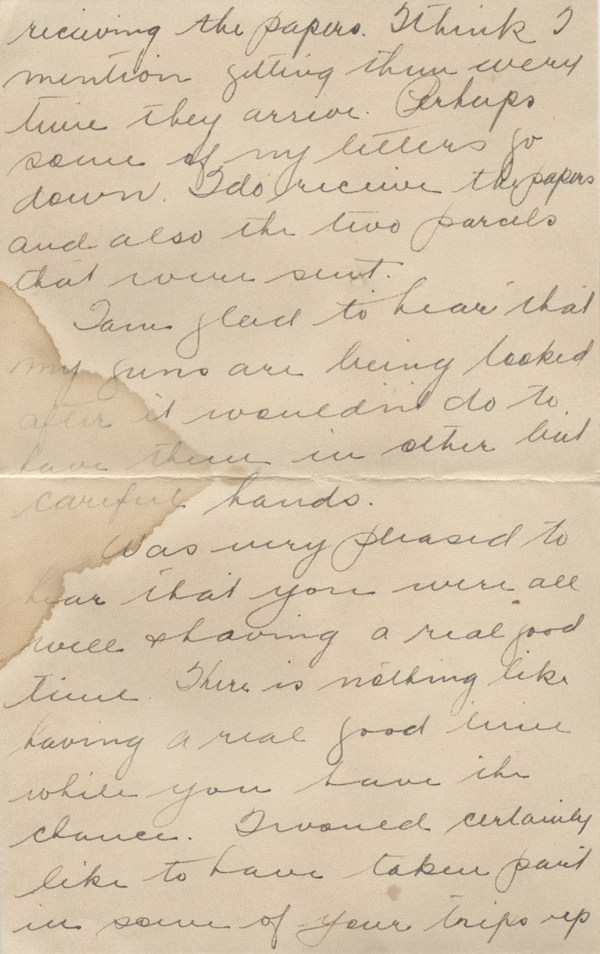 receiving the papers. I think I
mention getting them every
time they arrive. Perhaps
some of my letters go
down. I do receive the papers
and also the two parcels
that were sent.
I am glad to hear that
my guns are being looked
after it wouldn't do to
have them in other but
careful hands.
Was very pleased to
hear that you were all
well & having a real good
time. There is nothing like
having a real good time
while you have the
chance. I would certainly
like to have taken part
in some of your trips up